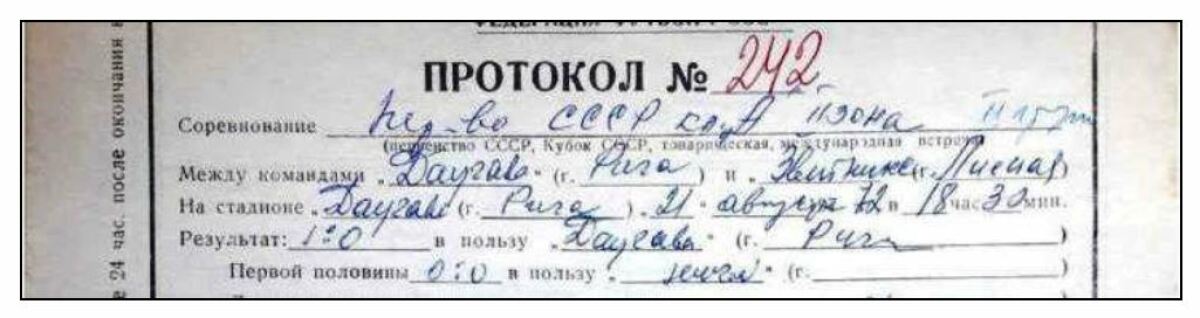 ФЕДЕРАЦИЯ ФУТБОЛА СССР
ПРОТОКОЛ № 242
Соревнование Пер-во СССР II зона
(первенство СССР, Кубок СССР, товарищеская, международная встреча)
Между командами „Даугава" (г. Рига) и „Нефтяник" (г.
На стадионе „Даугава" (г. Рига) „21" августа 72 в 18 час. 30 мин.
Результат: 1:0 в пользу „Даугава" (г. Рига)
Первой половины 0:0 в пользу „ничья" (г. )
е 24 час. после окончания